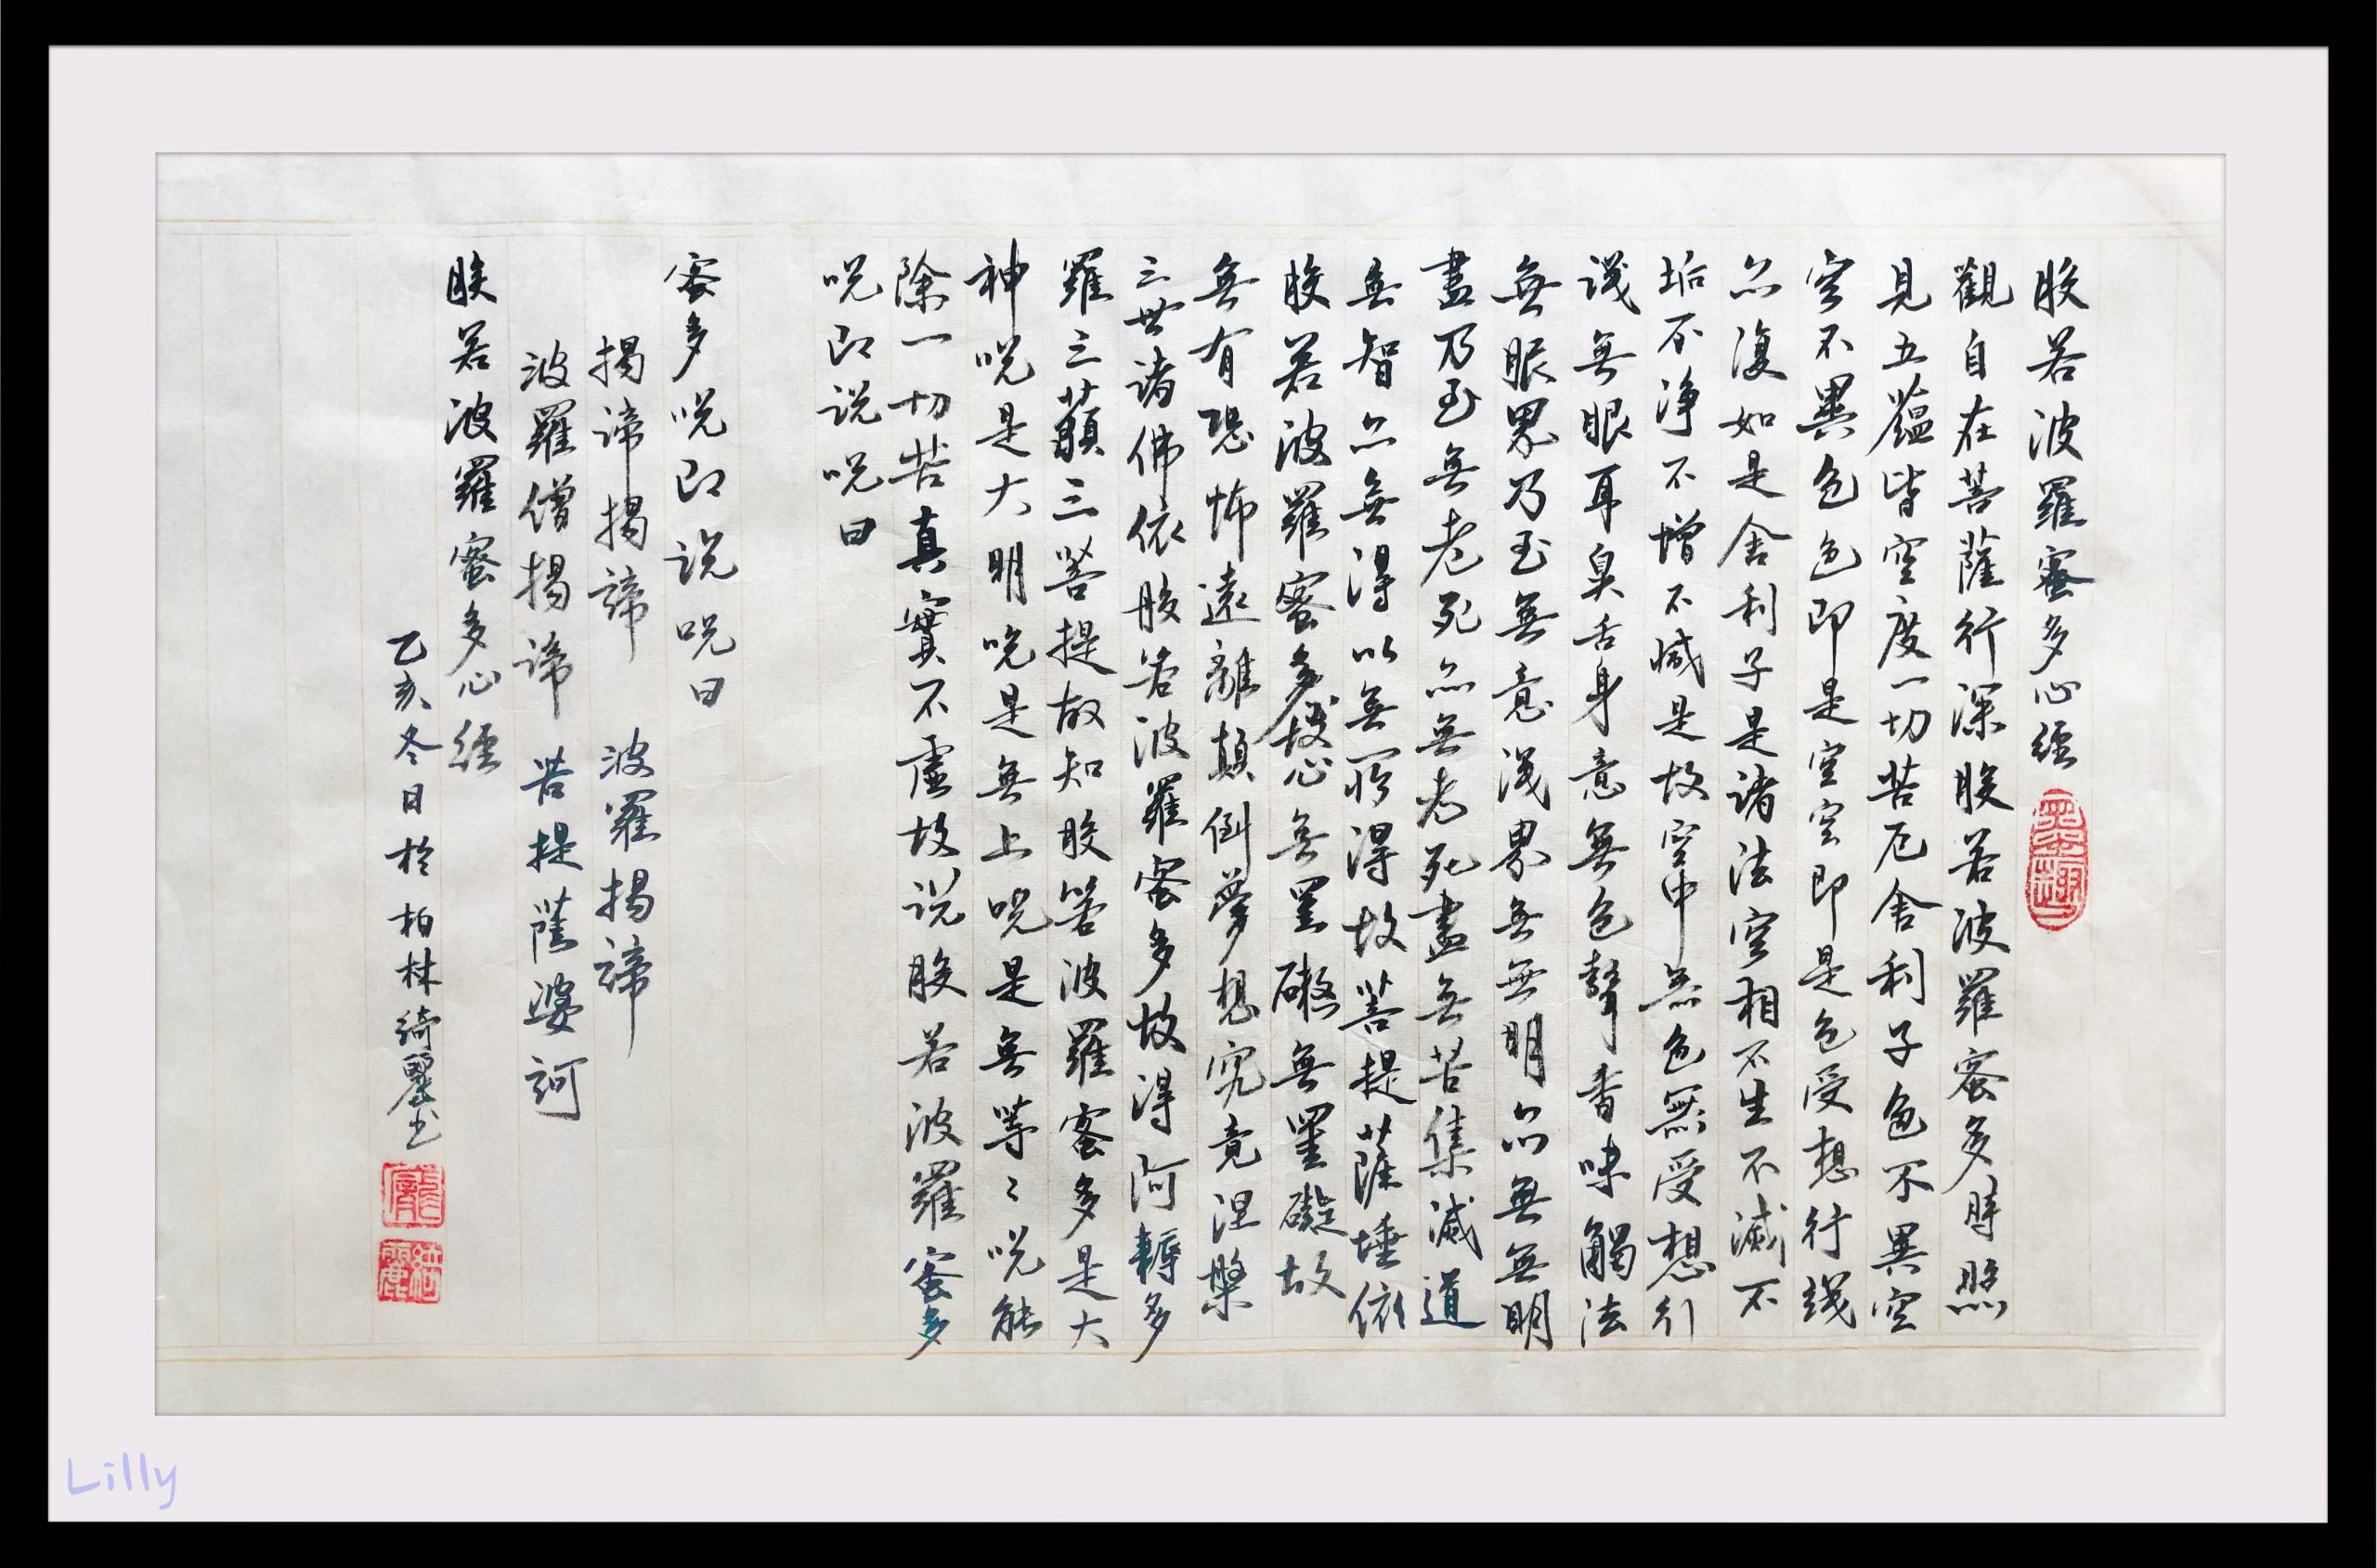 般若波羅蜜多心經
觀自在菩薩行深般若波羅蜜多時照
見五蘊皆空度一切苦厄舍利子色不異空
空不異色色即是空空即是色受想行識
亦復如是舍利子是諸法空相不生不滅不
垢不淨不增不減是故空中無色無受想行
識無眼耳鼻舌身意無色聲香味觸法
無眼界乃至無意識界無無明亦無無明
盡乃至無老死亦無老死盡無苦集滅道
無智亦無得以無所得故菩提薩埵依
般若波羅蜜多故心無罣礙無罣礙故
無有恐怖遠離顛倒夢想究竟涅槃
三世諸佛依般若波羅蜜多故得阿耨多
羅三藐三菩提故知般若波羅蜜多是大
神呪是大明呪是無上呪是無等〻呪能
除一切苦真實不虛故說般若波羅蜜多
呪即說呪曰
蜜多呪即說呪曰
揭諦揭諦 波羅揭諦
波羅僧揭諦 菩提薩婆訶
般若波羅蜜多心經
乙亥冬日於柏林綺麗書
龐
綺麗
Lilly